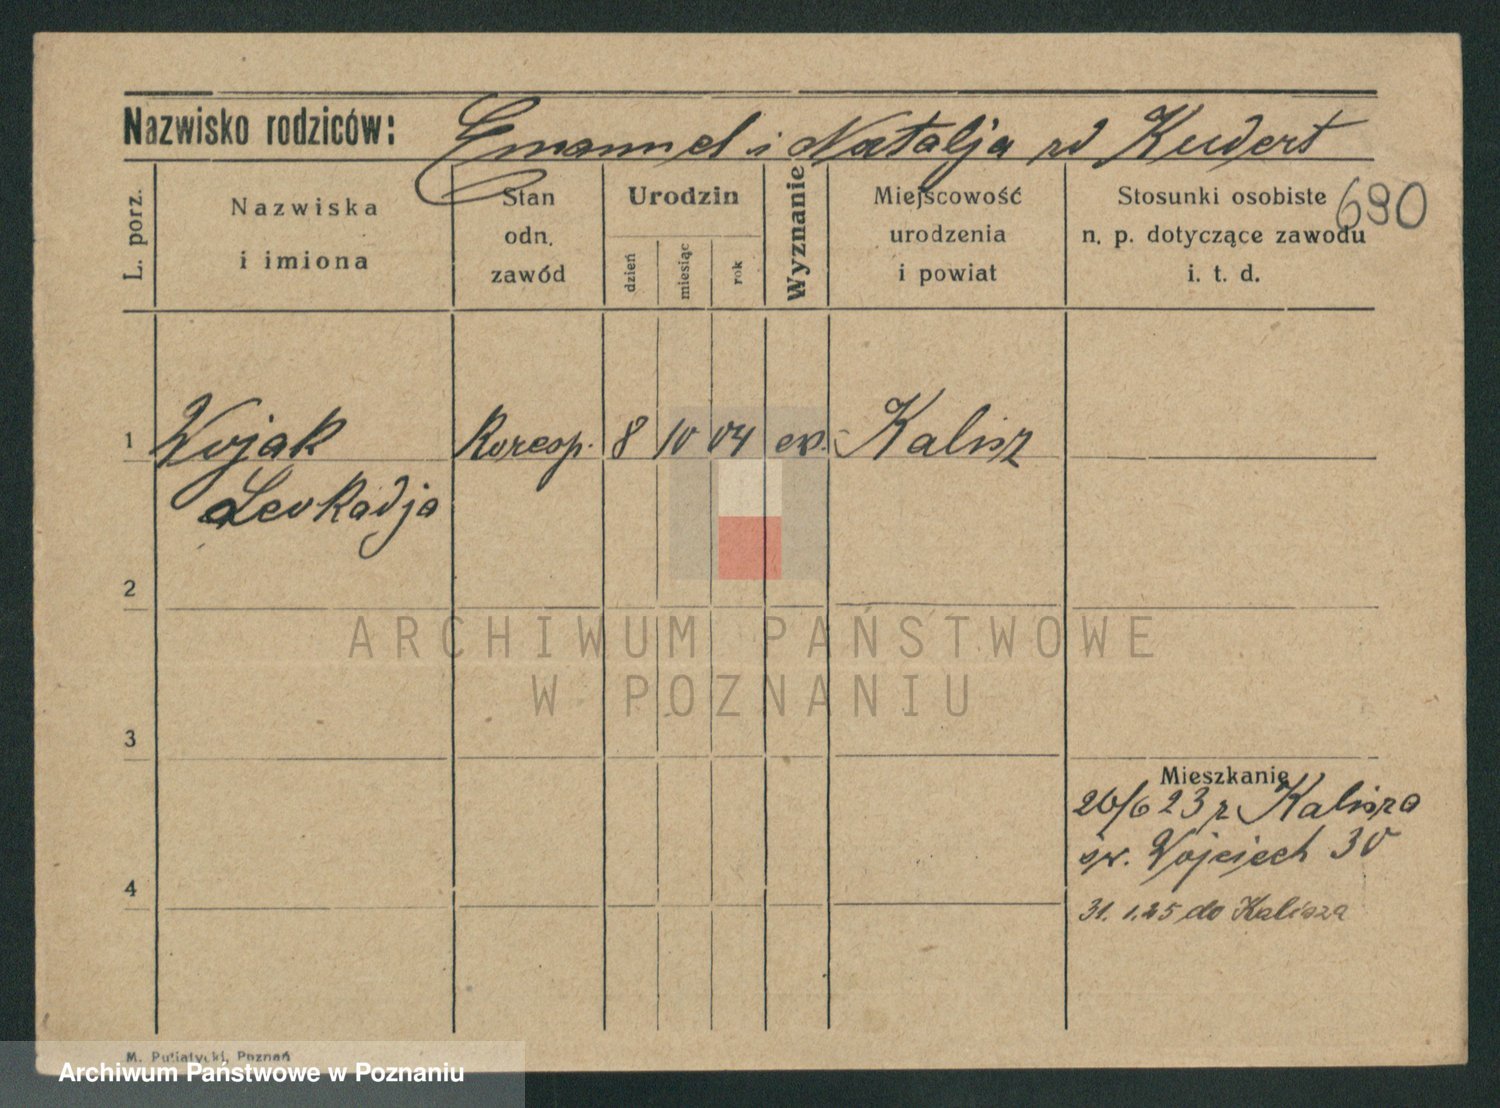 Nazwisko rodziców: Emanuel i Natalja rd Kudert
690
L. porz.
Nazwiska
i imiona
Stan
odn.
zawód
Urodzin
dzień
miesiąc
rok
Wyznanie
Miejscowość
urodzenia
i powiat
Stosunki osobiste
n. p. dotyczące zawodu
i. t. d.
1 Wojak Koresp. 8 10 04 ew. Kalisz
Leokadja
2
ARCHIWUM PAŃSTWOWE
W POZNANIU
3
Mieszkanie
26/6 23 z Kalisza
św. Wojciech 30
4
31. 1. 25 do Kalisza
M. Putiatycki, Poznań
Archiwum Państwowe w Poznaniu